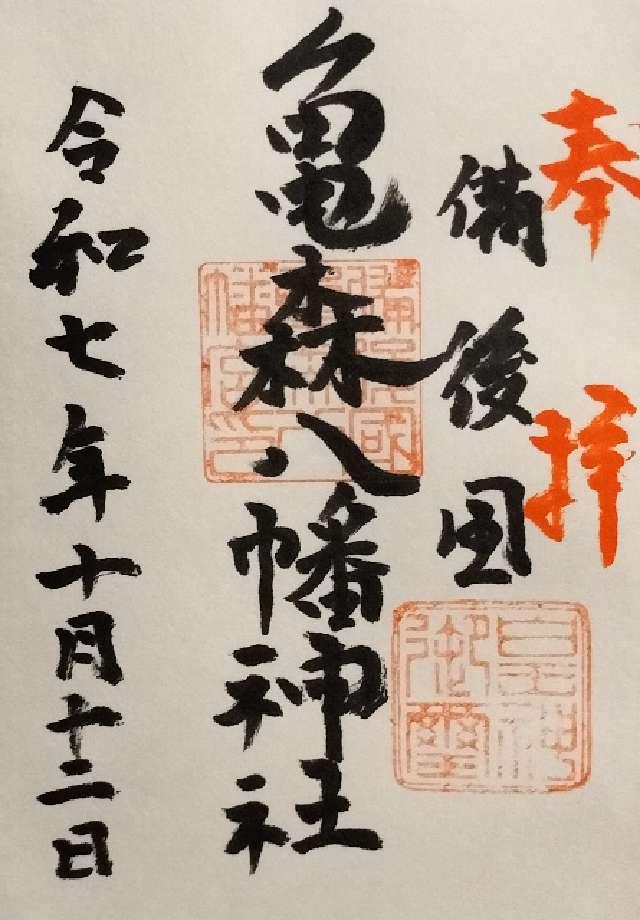 奉拝
備後国
亀森八幡神社
令和七年十月十二日
皇神御璽